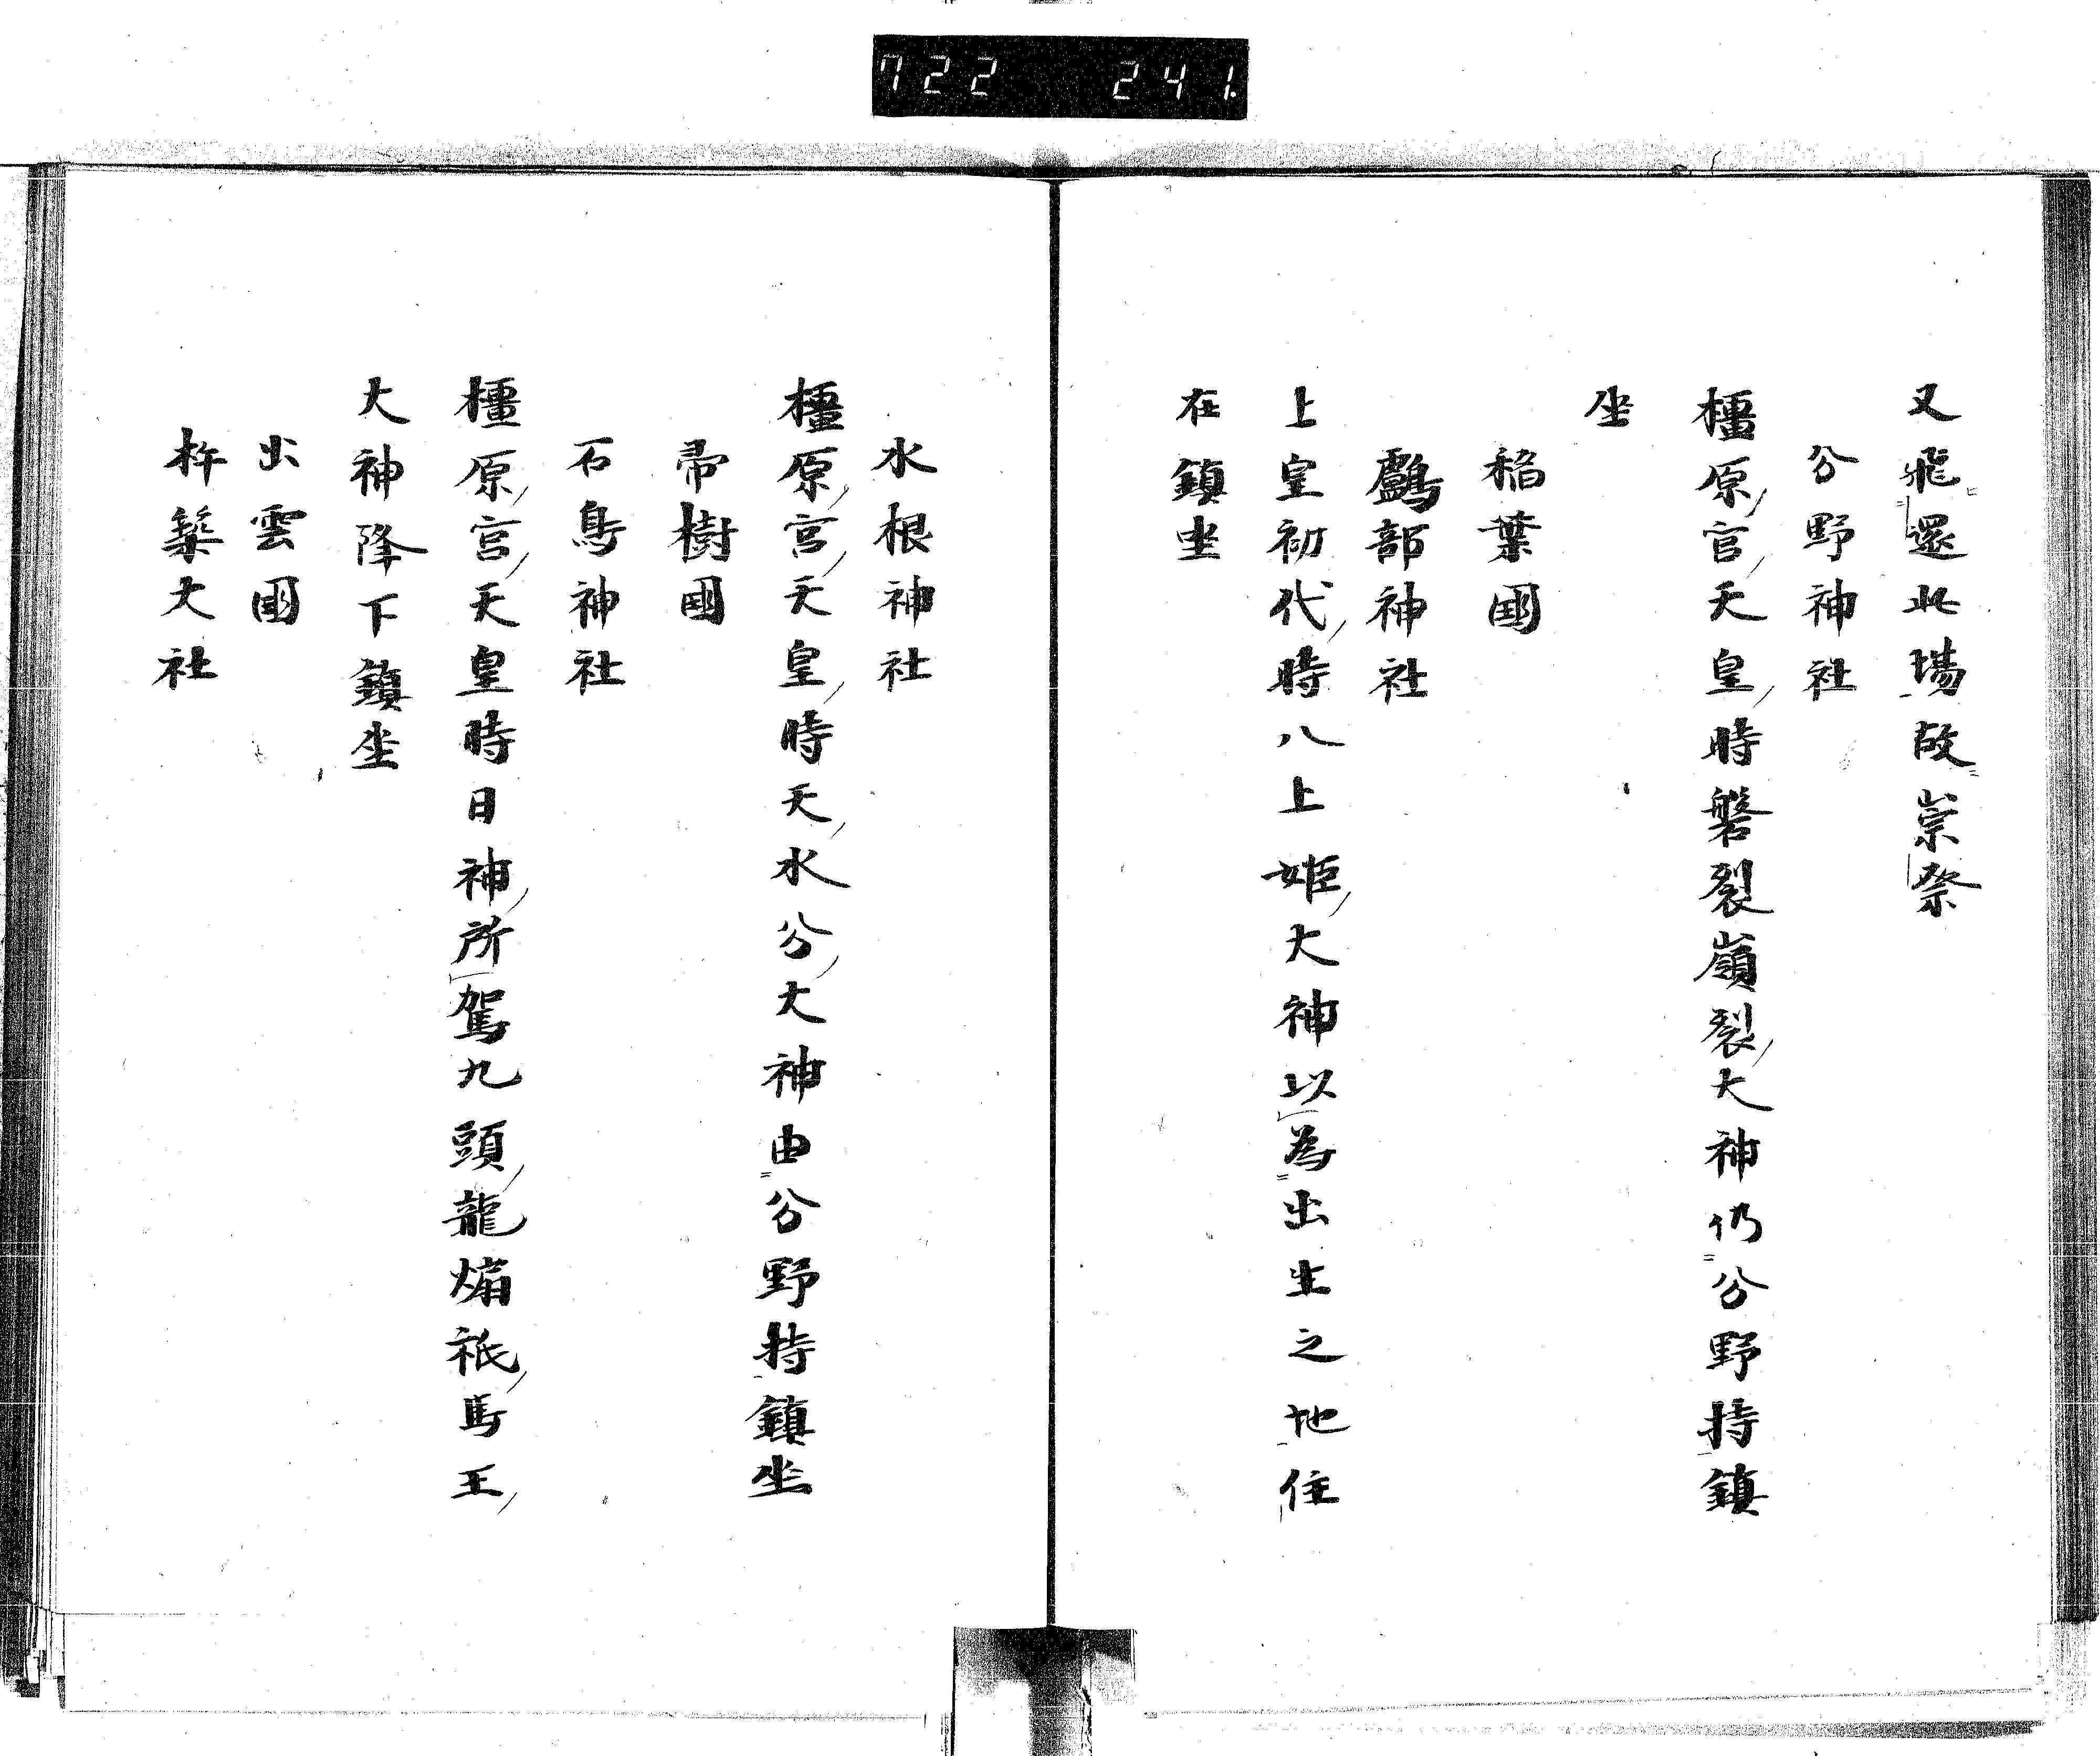 722 241.
又飛還此場故崇祭
分野神社
橿原宮天皇時磐裂嶺裂大神仍分野持鎮
坐
稲葉國
鸕部神社
上皇初代時八上姫大神以為出生之地住
在鎮坐
水根神社
橿原宮天皇時天水分大神由分野持鎮坐
帚樹國
石鳥神社
橿原宮天皇時日神所駕九頭龍煽祇馬王
大神降下鎮坐
出雲國
杵築大社